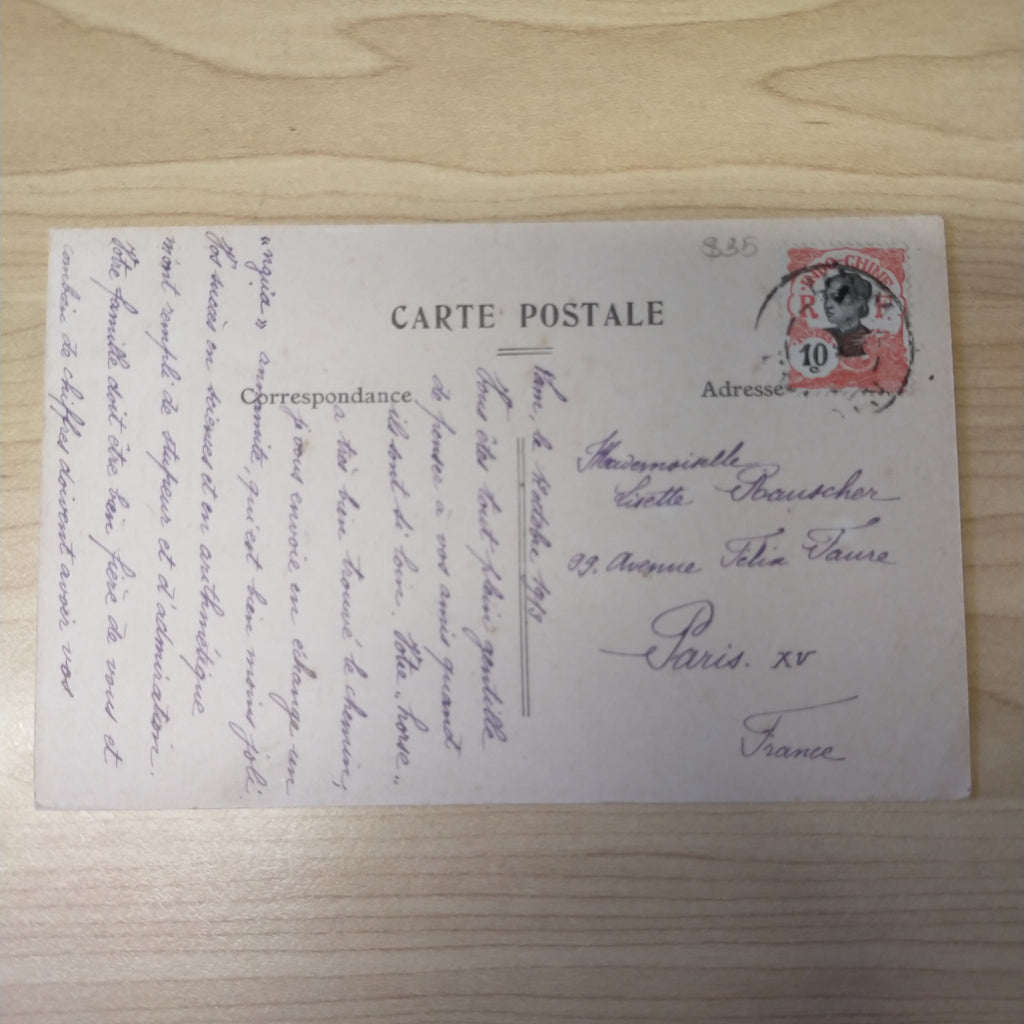 $35
INDO-CHINE
R F
10
CARTE POSTALE
Correspondance
Adresse
Mademoiselle
Lisette Rauscher
99. Avenue Félix Faure
Paris. XV
France
le octobre
Vous êtes tout plein gentille
de penser à vos amis quand
ils sont si loin. Votre "horse"
a très bien trouvé le chemin,
je vous envoie en échange un
"ngua" annamite, qui est bien moins joli.
Vos succès en sciences et en arithmétique
m'ont rempli de stupeur et d'admiration.
Votre famille doit être bien fière de vous et
combien de chiffres doivent avoir vos